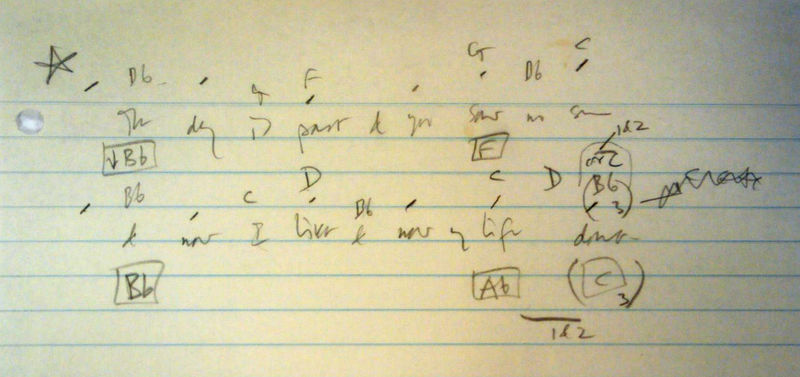 G C
Db F Db
The day is past & you saw no sun
↓Bb F 1&2
Bb C D C D Bb
Db 3
& now I live & now my life done
Bb Ab C
3
1&2